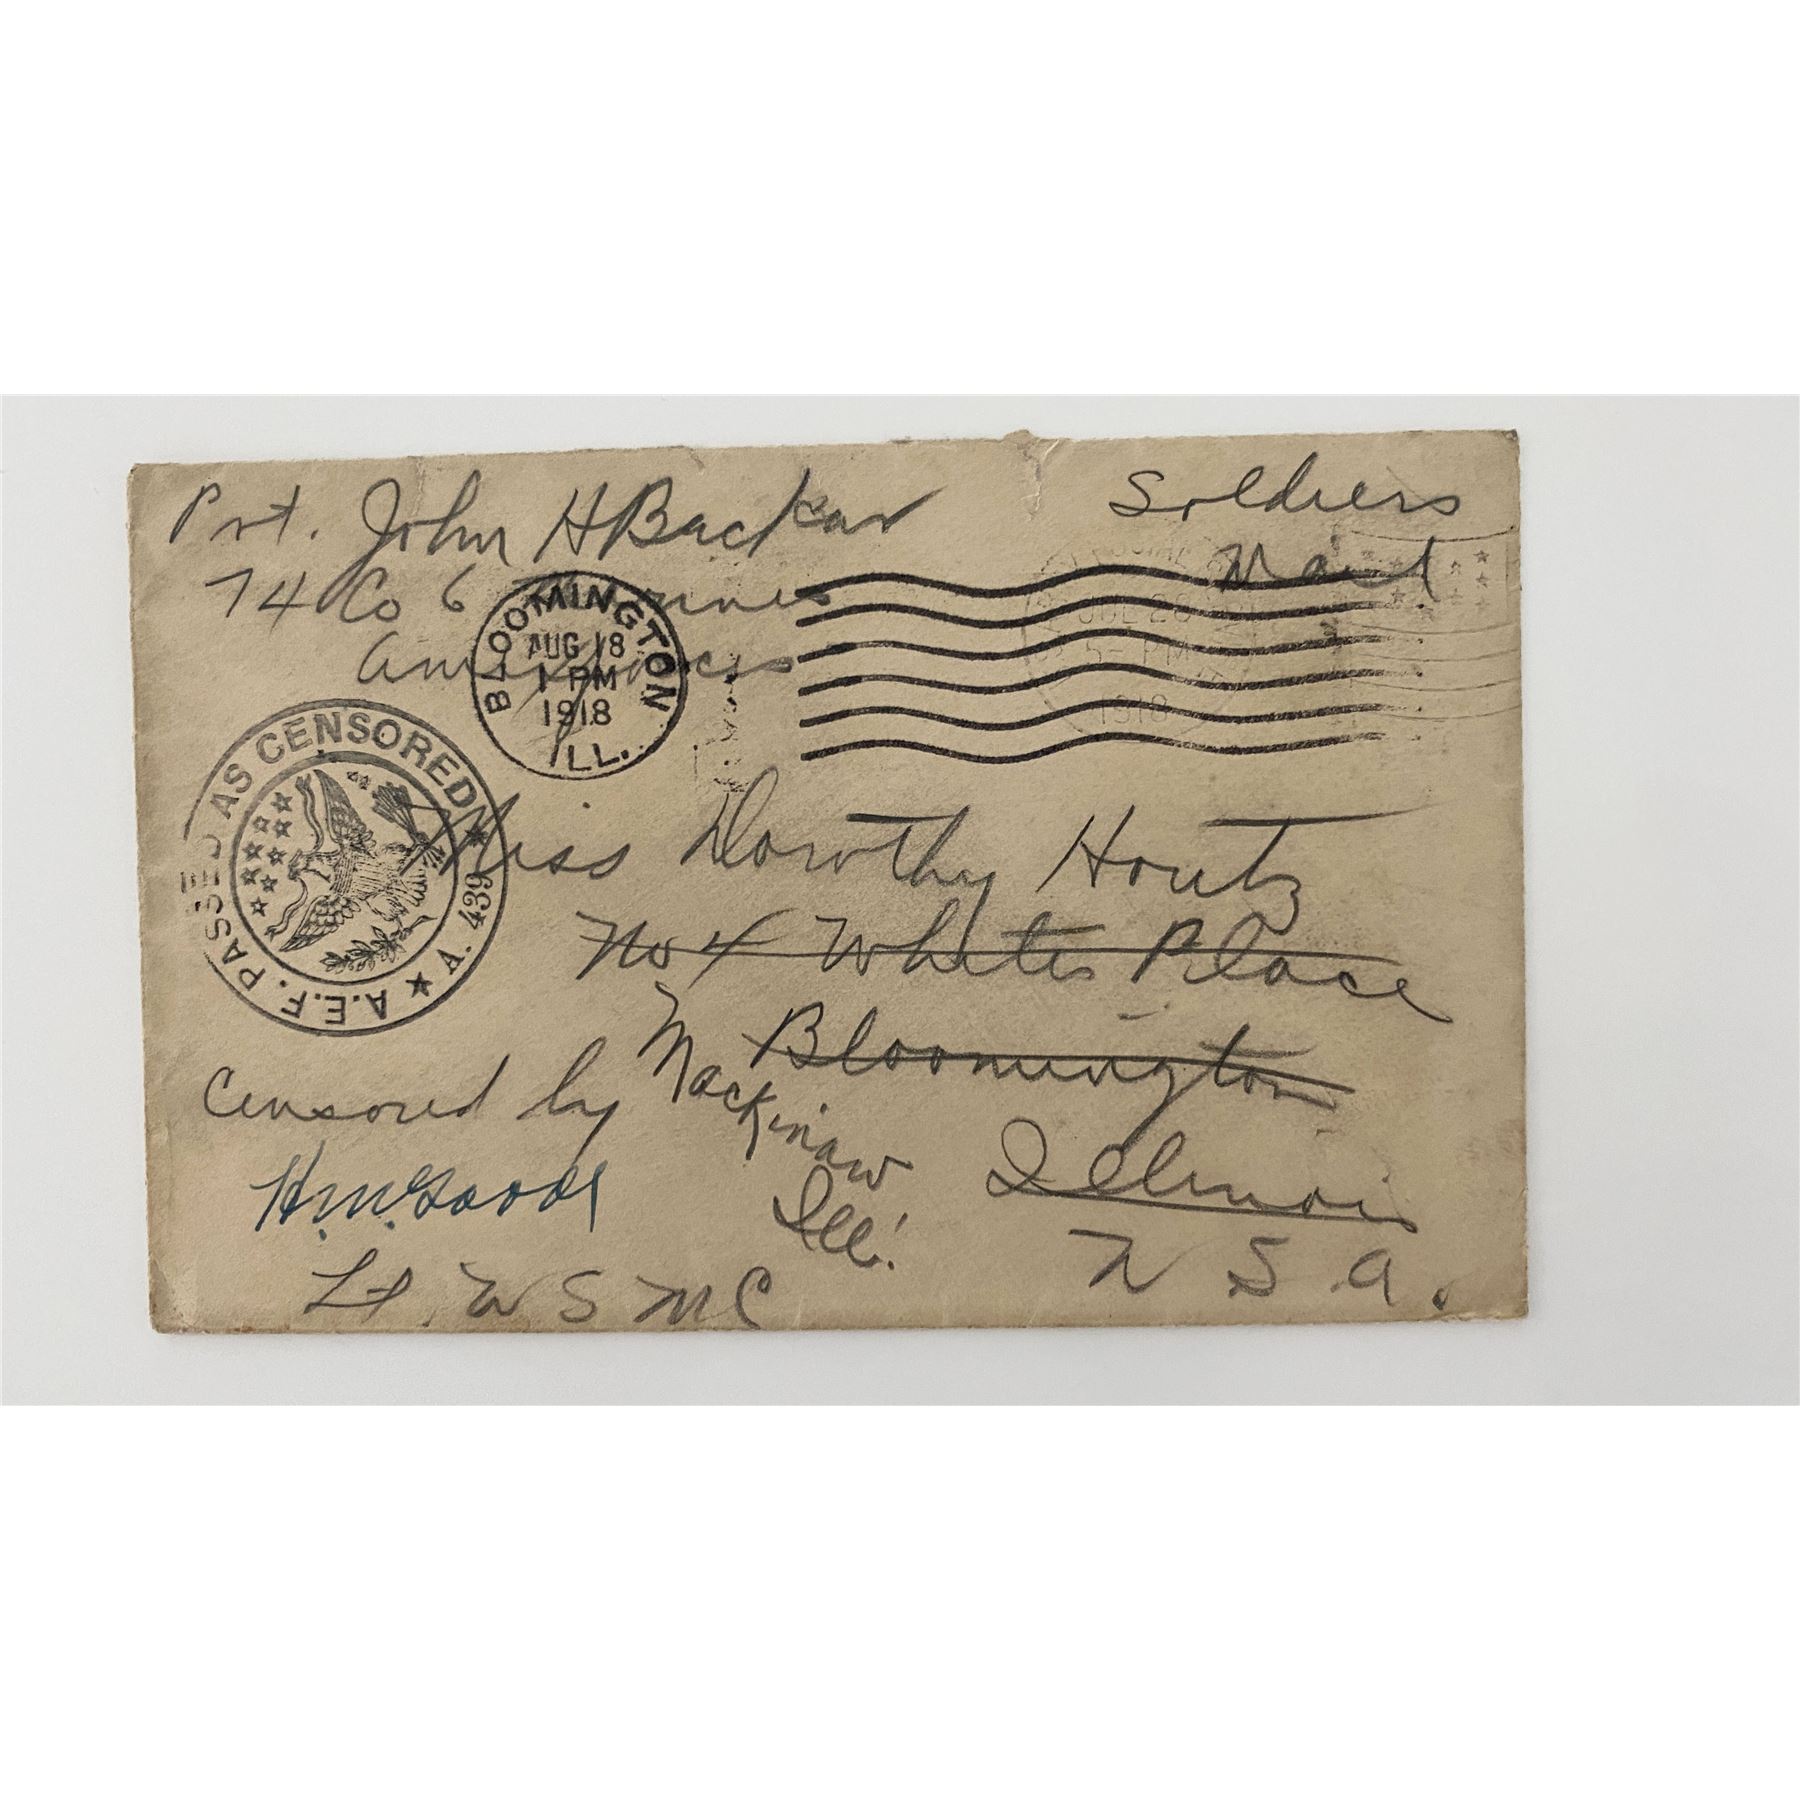 Pvt. John H Backar
74 Co 6 Marines
Am Forces
Soldiers
Mail
BLOOMINGTON
AUG 18
1 PM
1918
ILL.
JUL 28
5 - PM
1918
A.E.F. PASSED AS CENSORED
A. 439
Miss Dorothy Houtz
No 4 Whites Place
Bloomington
Illinois
U S A.
Mackinaw
Ill.
Censored by
H.M. Goode
Lt. U S M C